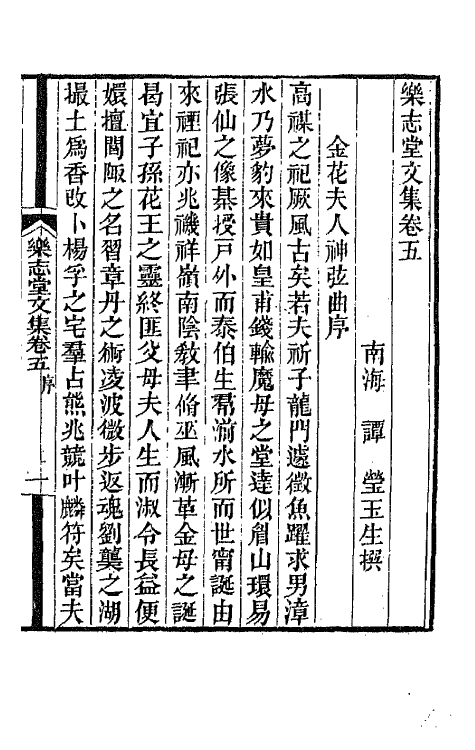 樂志堂文集卷五
南海　譚　瑩玉生撰
金花夫人神弦曲序
高禖之祀厥風古矣若夫祈子龍門遽徵魚躍求男漳
水乃夢豹來貴如皇甫錢輸魔母之堂達似眉山環易
張仙之像綦授戶外而泰伯生鬋湔水所而世甯誕由
來禋祀亦兆禨祥嶺南陰敎聿脩巫風漸革金母之誕
曷宜子孫花王之靈終匪父母夫人生而淑令長益便
嬛擅閭陬之名習章丹之術凌波微步返魂劉龑之湖
撮土爲香改卜楊孚之宅羣占熊兆競叶麟符矣當夫
樂志堂文集卷五　序　一